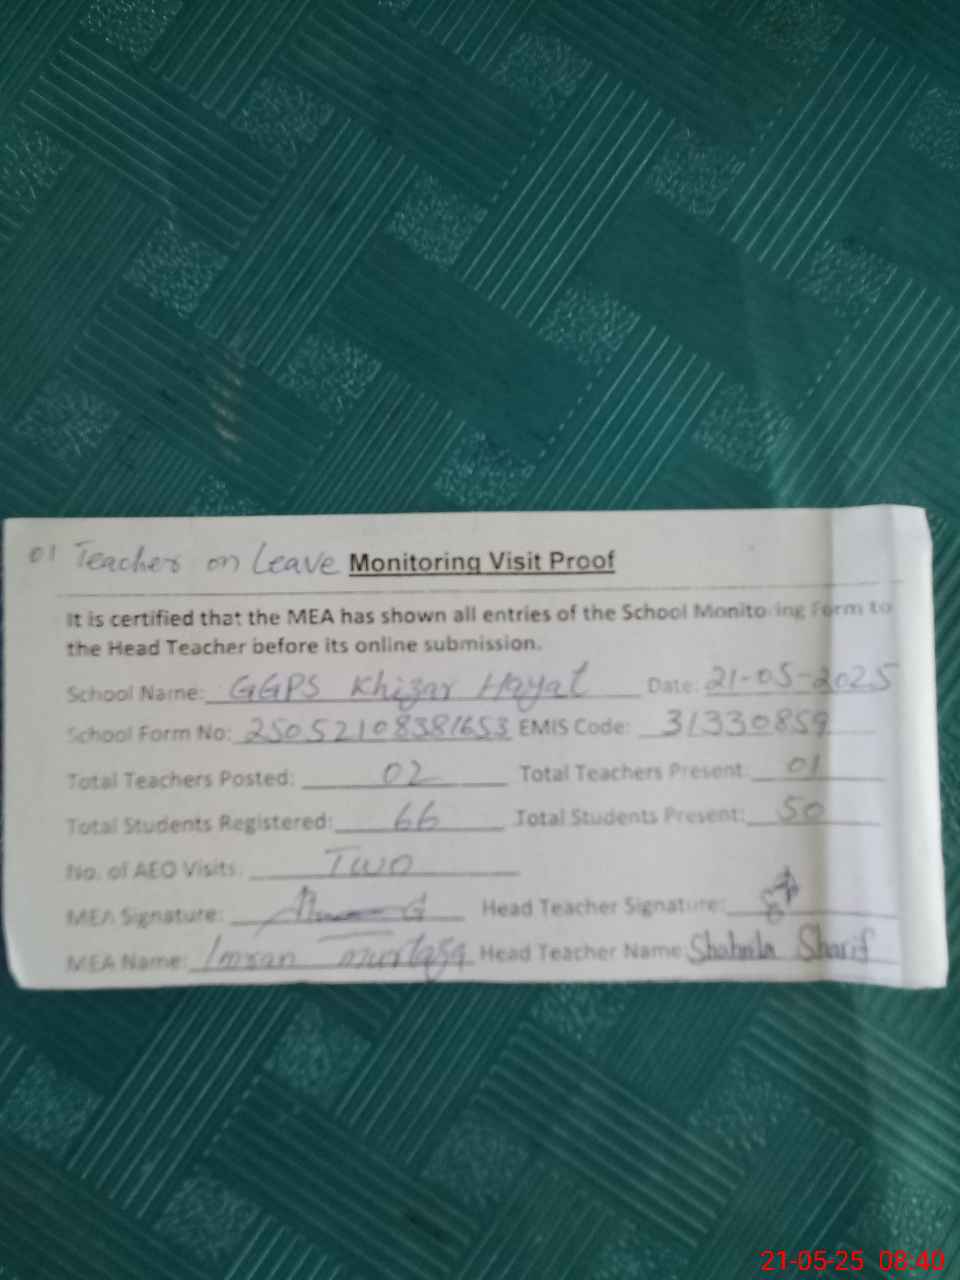 01 Teacher on Leave Monitoring Visit Proof
It is certified that the MEA has shown all entries of the School Monitoring Form to
the Head Teacher before its online submission.
School Name: GGPS Khizar Hayat Date: 21-05-2025
School Form No: 25052108381653 EMIS Code: 31330859
Total Teachers Posted: 02 Total Teachers Present: 01
Total Students Registered: 66 Total Students Present: 50
No. of AEO Visits: Two
MEA Signature: Head Teacher Signature:
MEA Name: Imran Murtaza Head Teacher Name: Shahnila Sharif
21-05-25 08:40